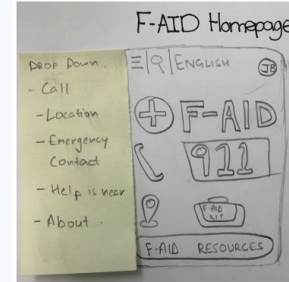 F-AID Homepage
DROP DOWN
- Call
- Location
- Emergency
Contact
- Help is near
- About
ENGLISH
JB
F-AID
911
F-AID
KIT
F-AID RESOURCES